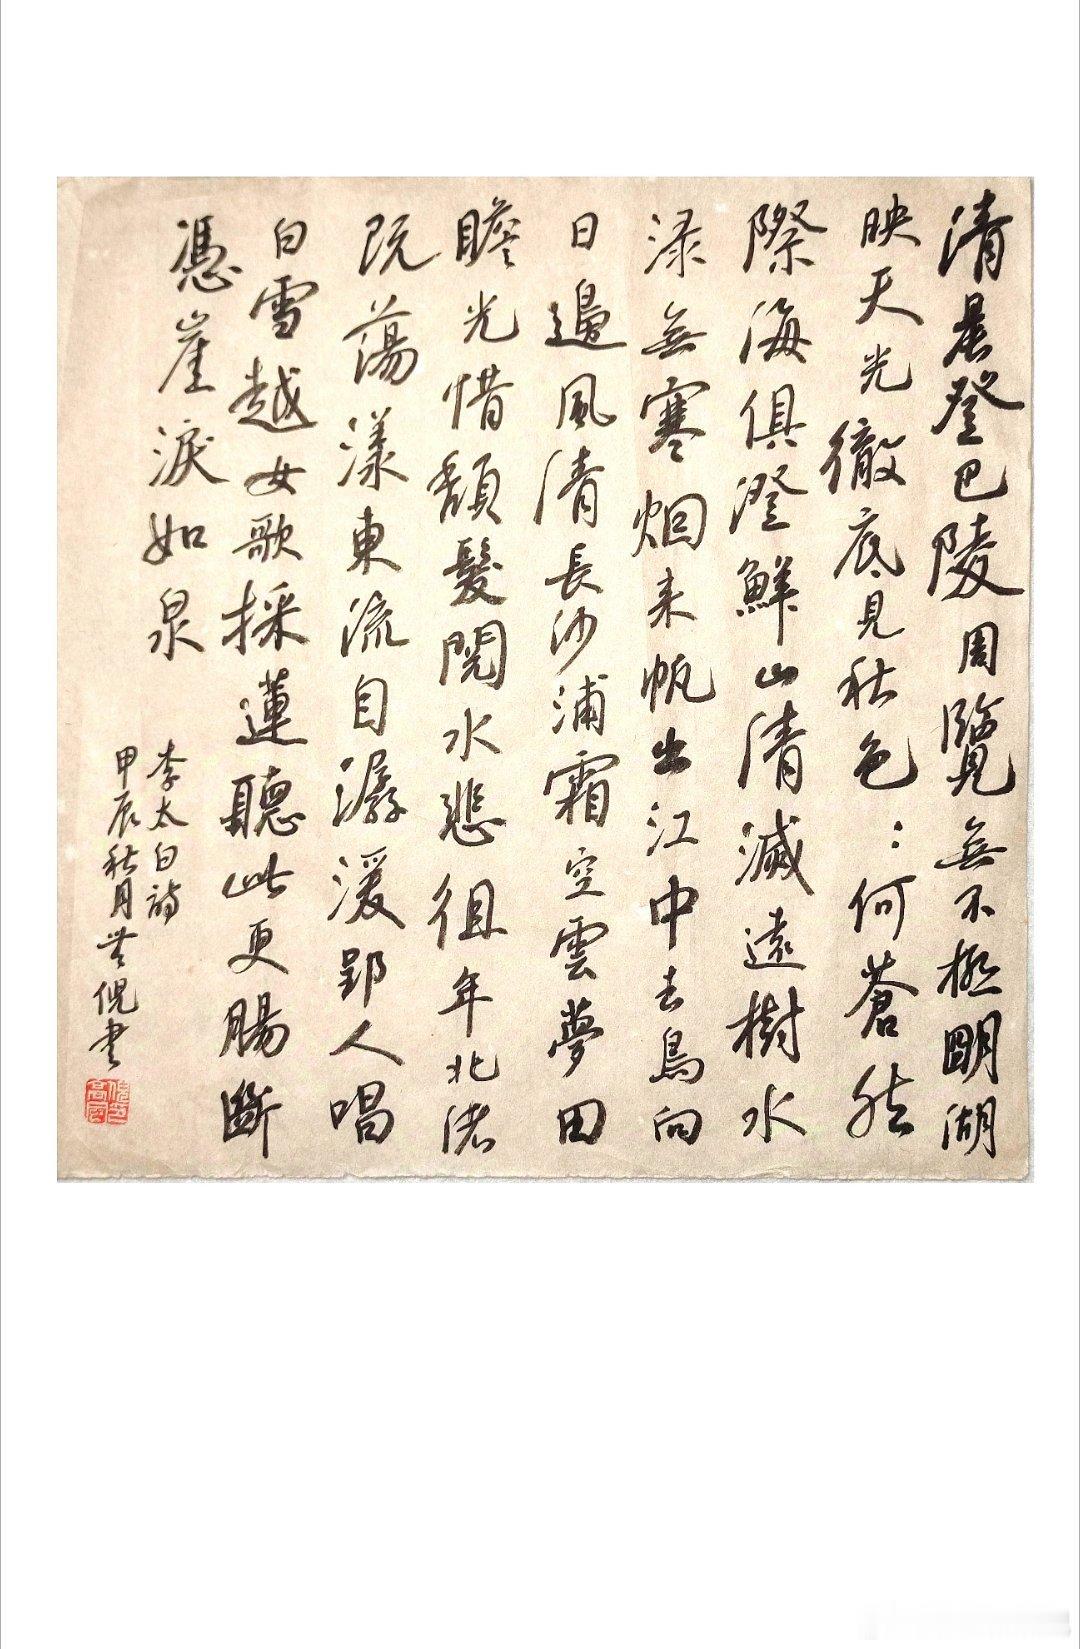 清晨登巴陵周覽無不極明湖
映天光徹底見秋色：何蒼然
際海俱澄鮮山清滅遠樹水
渌無寒烟来帆出江中去鳥向
日邊風清長沙浦霜空雲夢田
瞻光惜頹髮閱水悲徂年北渚
既蕩漾東流自潺湲郢人唱
白雪越女歌採蓮聽此更腸斷
憑崖淚如泉
李太白詩
甲辰秋月
倪書